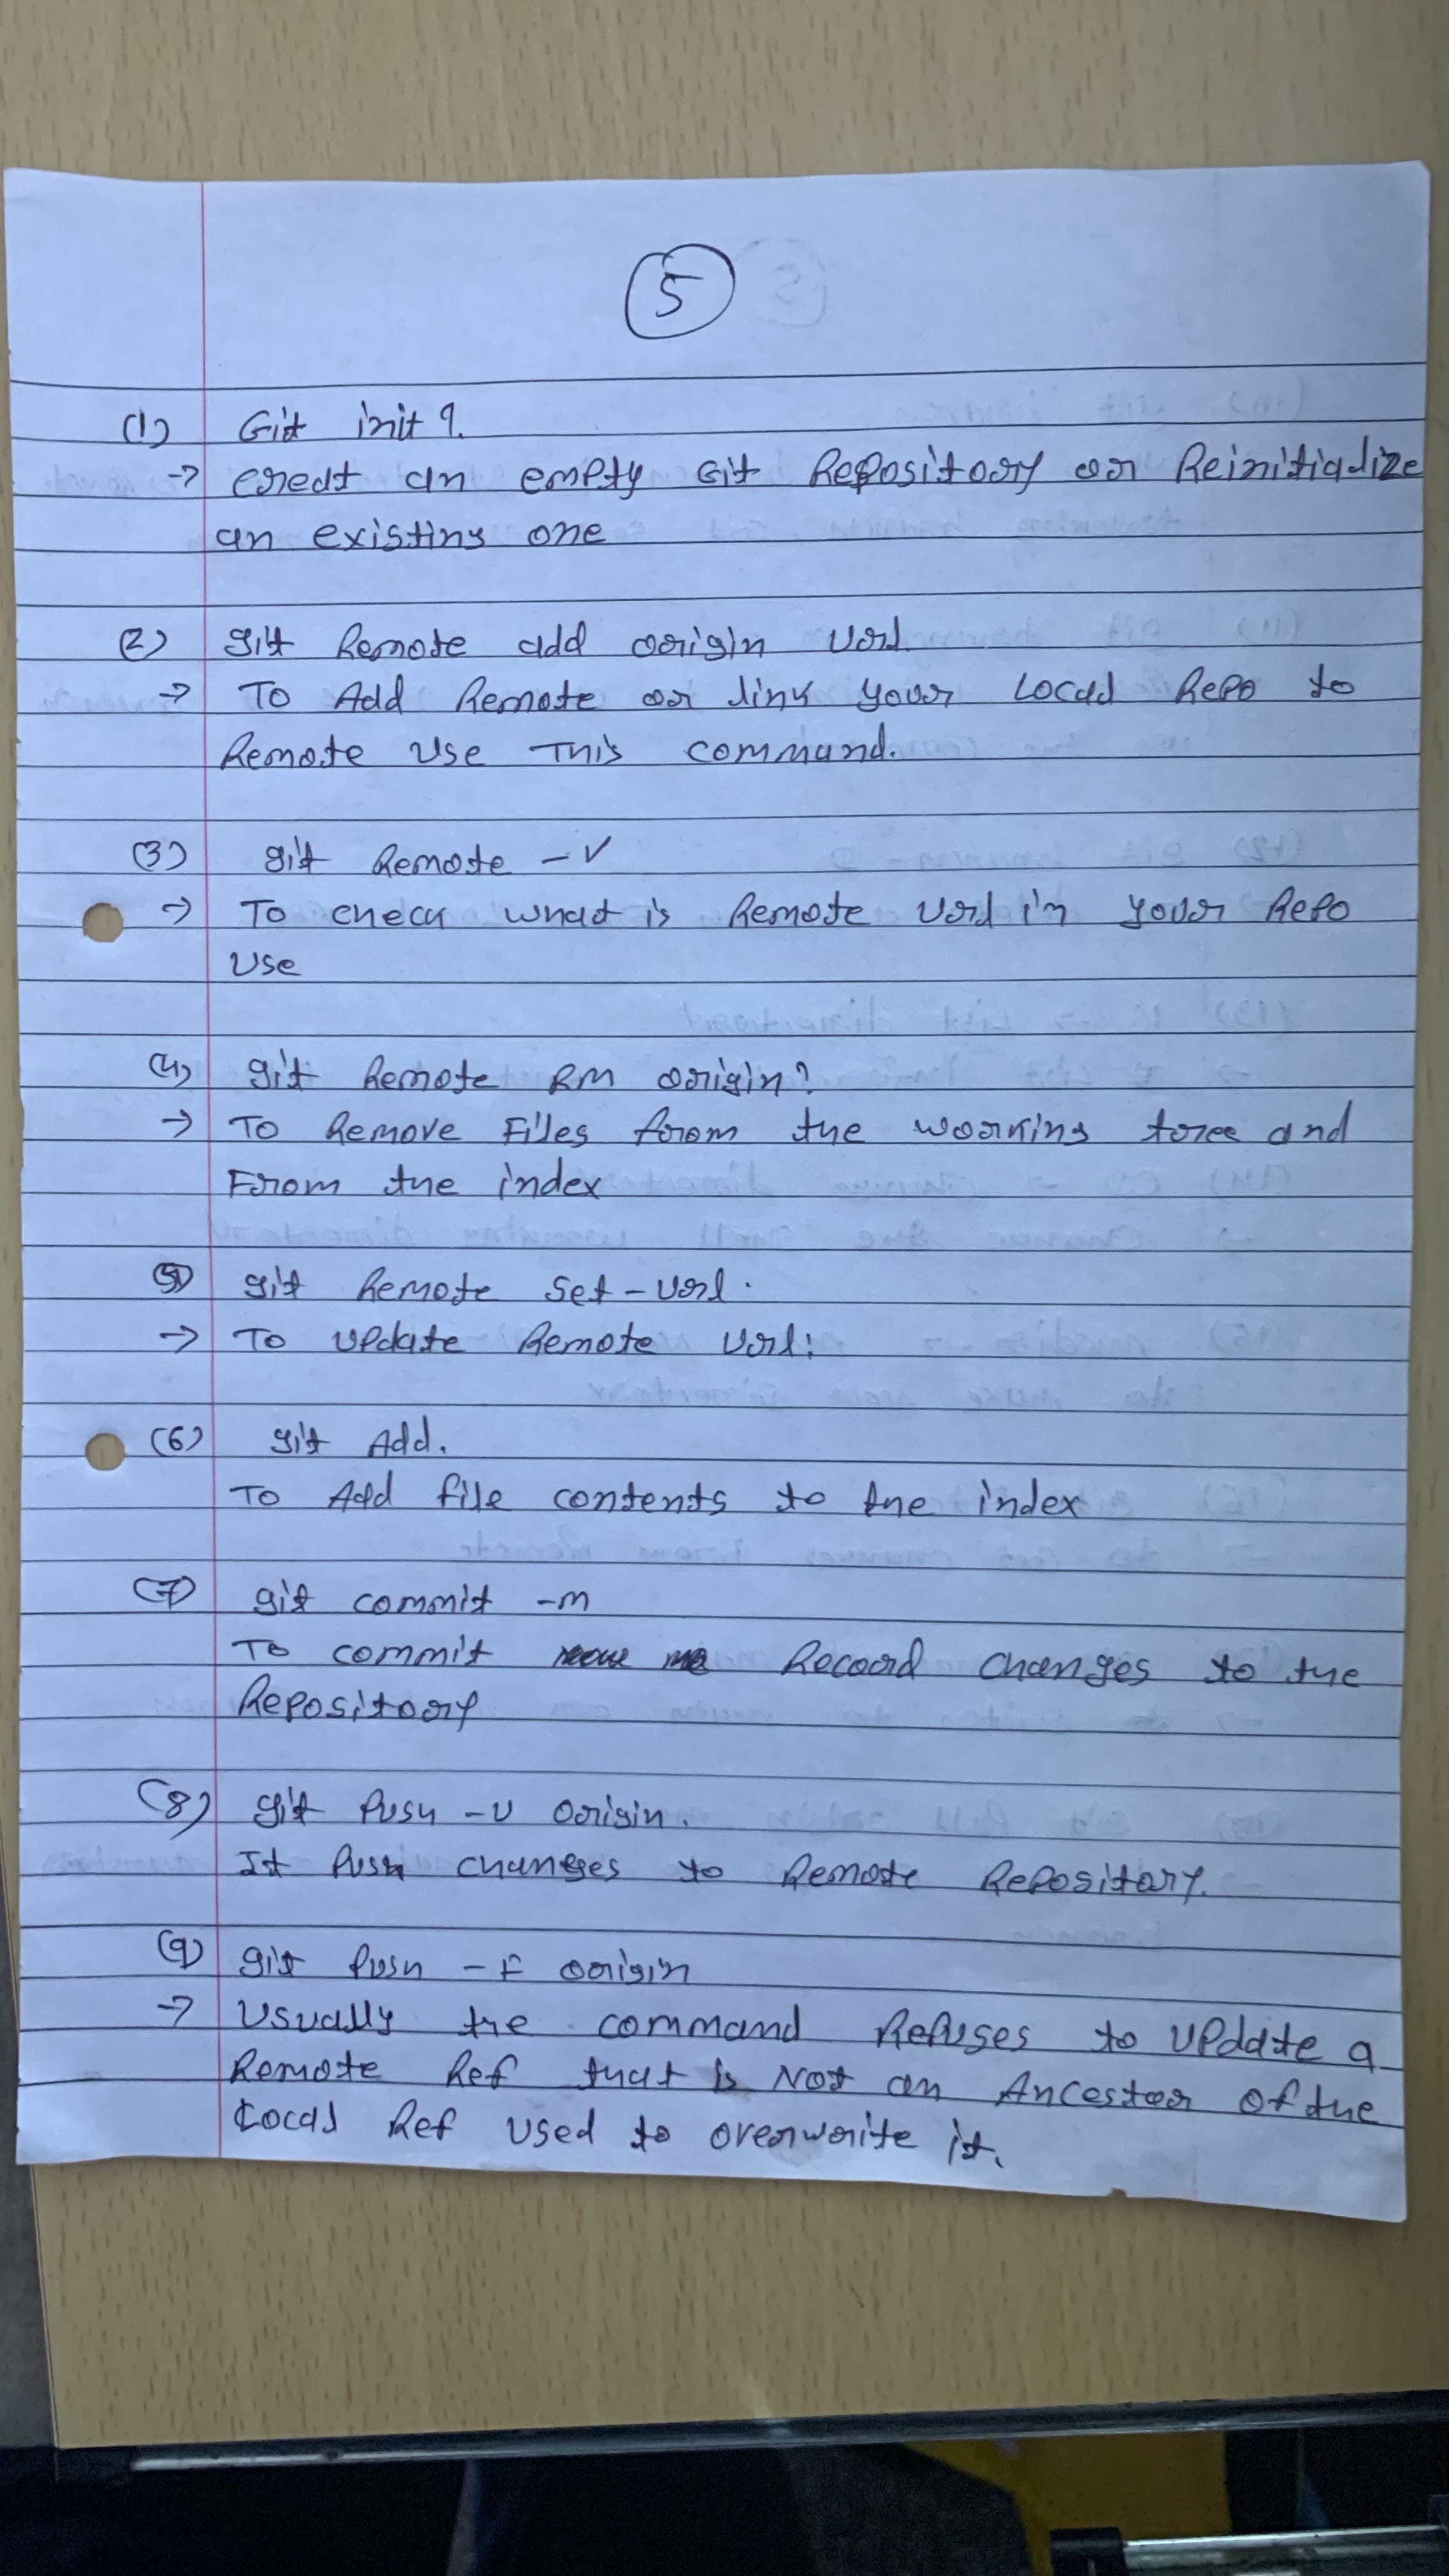 5
(1) Git init ?.
→ creat an empty Git Repository or Reinitialize
an existing one
(2) git Remote add origin Url
→ To Add Remote or link your Local Repo to
Remote Use This command.
(3) git Remote -v
→ To check what is Remote Url in your Repo
Use
(4) git Remote RM origin?
→ To Remove Files from the working tree and
From the index
(5) git Remote Set-Url.
→ To Update Remote Url:
(6) git Add.
To Add file contents to the index
(7) git commit -m
To commit Record changes to the
Repository
(8) git Push -u Origin.
It Push changes to Remote Repository.
(9) git Push -F origin
→ Usually the command Refuses to Update a
Remote Ref that is Not an Ancestor of the
Local Ref used to overwrite it.